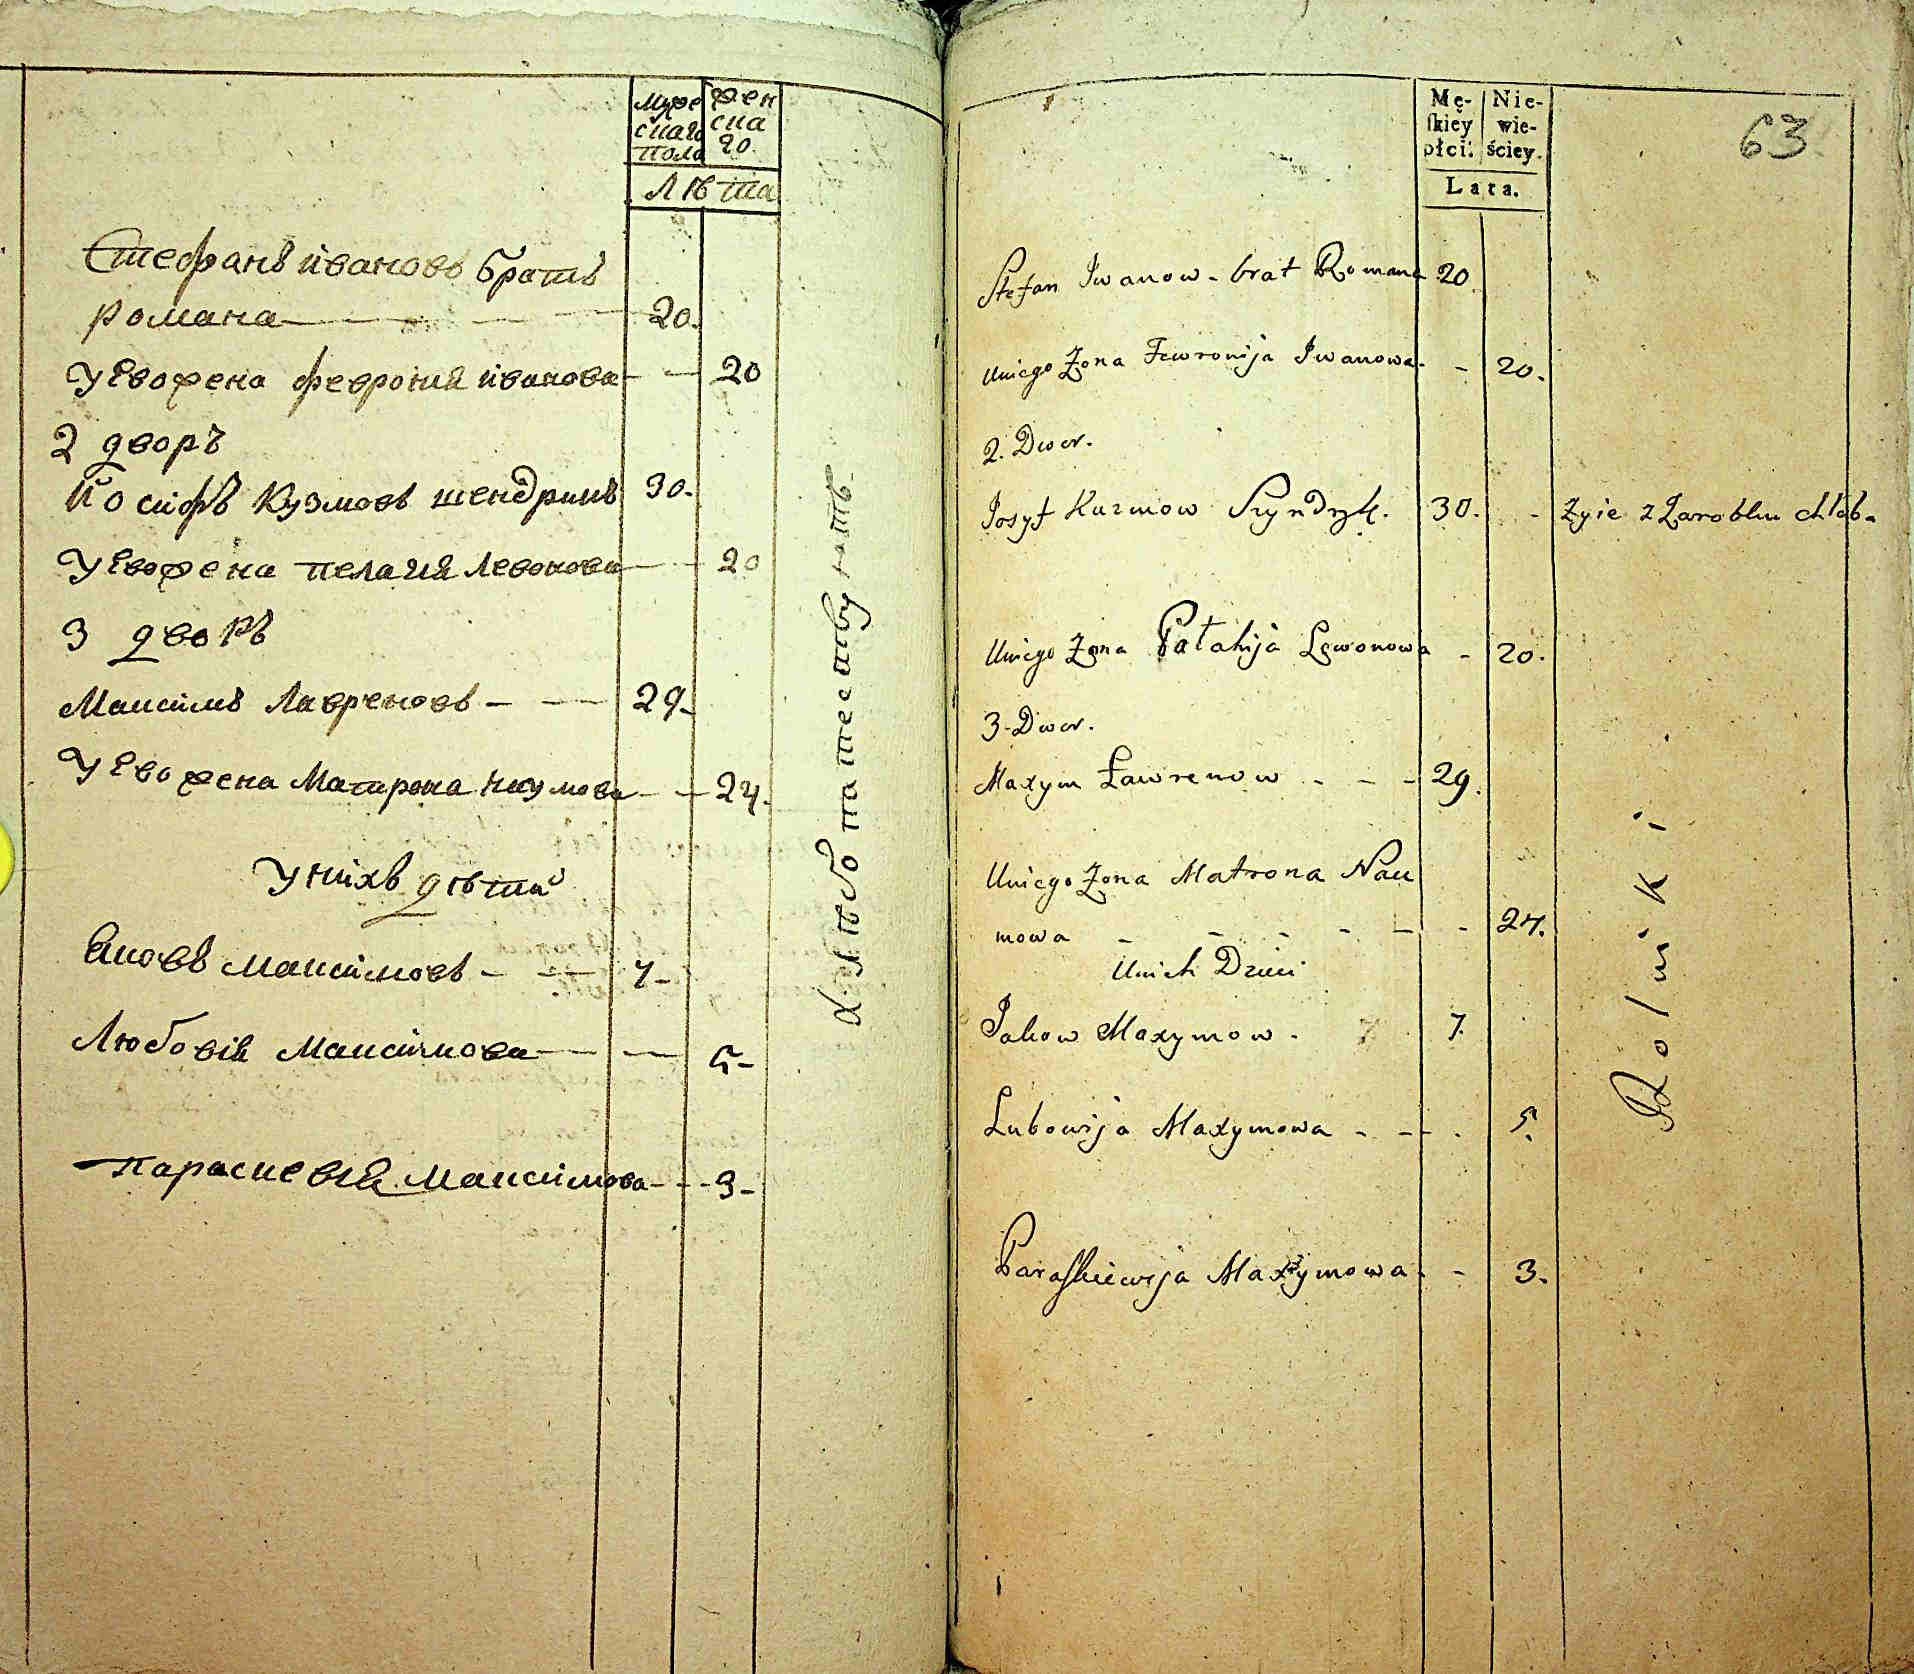 Муже
скаго
пола
жен
ска
го.
Лѣта
Стефанъ ивановъ братъ
романа 20.
У Его жена феврония иванова 20
2 дворъ
Йосифъ Кузмовъ шендрикъ 30.
У Его жена пелагия Левонова 20
3 дворъ
Максимъ Лавреновъ 29
У Его жена Матрона Наумова 24.
У нихъ дѣти
Яковъ Максимовъ 7
Любовія Максимова 5
Параскевія Максимова 3
Хлѣбопашествуютъ
63
Mę-
ſkiey
płci.
Nie-
wie-
ściey.
Lata.
Stefan Iwanow - brat Romana 20
Uniego Żona Fewronija Iwanowa - 20.
2. Dwor.
Josyf Kuzmow Szyndryk. 30. - Zyie z Zarobku chleb.
Uniego Żona Pałahija Lewonowa - 20.
3. Dwor.
Maxym Ławrenow - - - 29.
Uniego Żona Matrona Nau
mowa - - - - - - 24.
Unich Dzieci
Jakow Maxymow. 7.
Lubowija Maxymowa - - - 5.
Paraſkiewija Maxymowa - - 3.
Rolniki